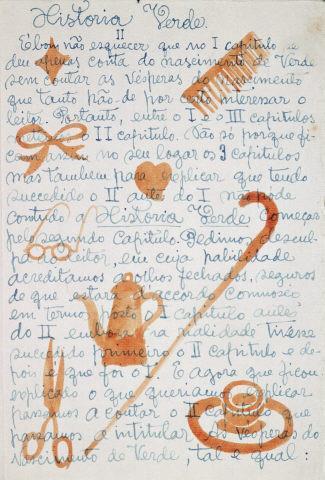 Historia Verde.
II
E bom não esquecer que no I capitulo se
deu apenas conta do nascimento de Verde
sem contar as vesperas do nascimento
que tanto pão-de por certo interesar o
leitor. Portanto, entre o I e o III capitulos
II capitulo. Não só porque fi-
cam assim no seu logar os 3 capitulos
mas tambem para explicar que tendo
succedido o II antes do I não pode
comtudo a Historia Verde começar
pelo segundo Capitulo. Pedimos descul-
pa leitor, em cuja
acreditamos a olhos fechados, seguros
de que estará de accordo comnosco
em termos posto o I capitulo antes
do II embora na realidade tivesse
succedido primeiro o II capitulo e de-
pois é que foi o I. E agora que ficou
explicado o que queriamos explicar
passemos a contar o II capitulo que
passamos a intitular As Vesperas do
Nascimento de Verde, tal e qual: